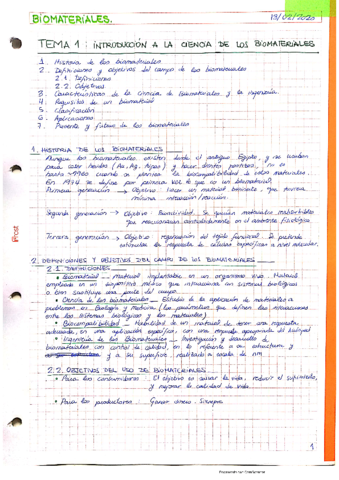 BIOMATERIALES.
13/02/2020
TEMA 1: INTRODUCCIÓN A LA CIENCIA DE LOS BIOMATERIALES
1. Historia de los biomateriales
2. Definiciones y objetivos del campo de los biomateriales
2.1. Definiciones
2.2. Objetivos
3. Características de la ciencia de biomateriales y la ingeniería
4. Requisitos de un biomaterial
5. Clasificación
6. Aplicaciones
7. Presente y futuro de los biomateriales
1. HISTORIA DE LOS BIOMATERIALES
Aunque los biomateriales existen desde el antiguo Egipto, y se usaban
para coser heridas (Au, Ag, tripas) y hacer dientes postizos, no es
hasta 1960 cuando se plantea la biocompatibilidad de estos materiales.
En 1974 se define por primera vez lo que es un biomaterial.
Primera generación → Objetivo: hacer un material bioinerte, que tuviera
mínima interacción/reacción.
Segunda generación → Objetivo: Bioactividad. Se querían materiales reabsorbibles
que reaccionaran controladamente en el ambiente fisiológico
Tercera generación → Objetivo: regeneración del tejido funcional. Se pretende
estimular la respuesta de células específicas a nivel molecular.
2. DEFINICIONES Y OBJETIVOS DEL CAMPO DE LOS BIOMATERIALES
2.1. DEFINICIONES
• Biomaterial → material implantable en un organismo vivo. Material
empleado en un dispositivo médico que interacciona con sistemas biológicos
o bien sustituye una parte del cuerpo.
• Ciencia de los biomateriales → Estudio de la aplicación de materiales a
problemas en Biología y Medicina (los parámetros que definen las interacciones
entre los sistemas biológicos y los materiales)
• Biocompatibilidad → Habilidad de un material de tener una respuesta
adecuada en una aplicación específica, con una respuesta apropiada del huésped
• Ingeniería de los Biomateriales → Investigación y desarrollo de
biomateriales, con control de calidad, en lo referente a su estructura y
y a su superficie, realizado a escala de nm
2.2. OBJETIVOS DEL USO DE BIOMATERIALES.
• Para los consumidores: El objetivo es salvar la vida, reducir el sufrimiento,
y mejorar la calidad de vida.
• Para los productores: Ganar dinero. Siempre
1